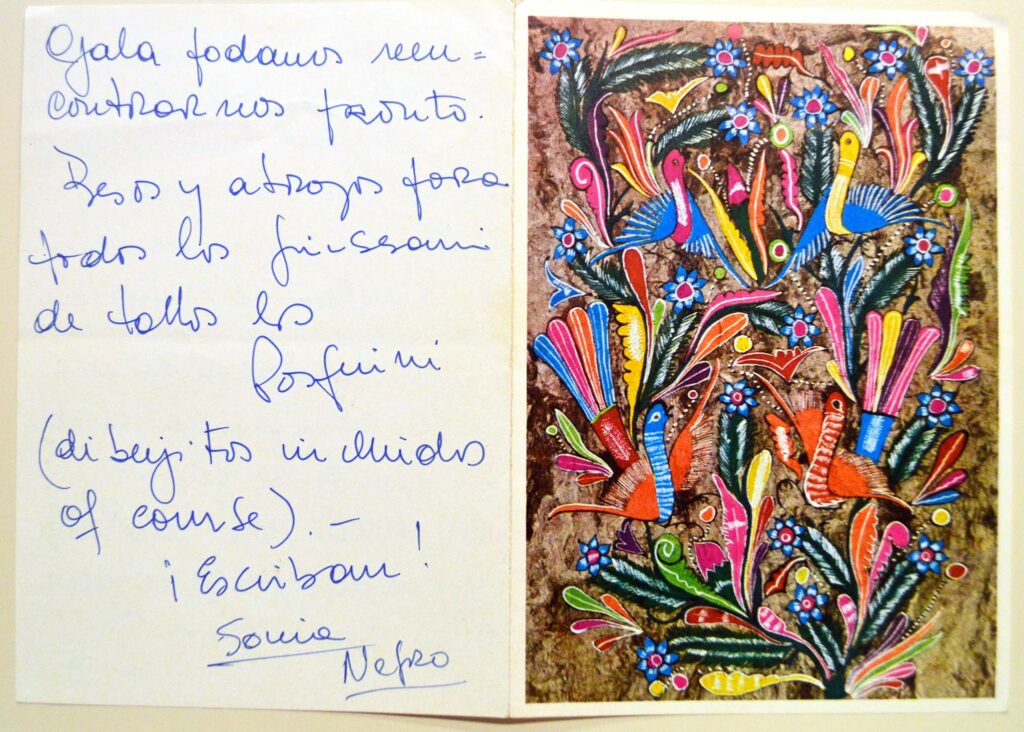 Ojala podamos reen=
contrarnos pronto.
Besos y abrazos para
todos los
de todos los
Pasquini
(dibujitos incluidos
of course). —
¡Escriban!
Sonia
Negro